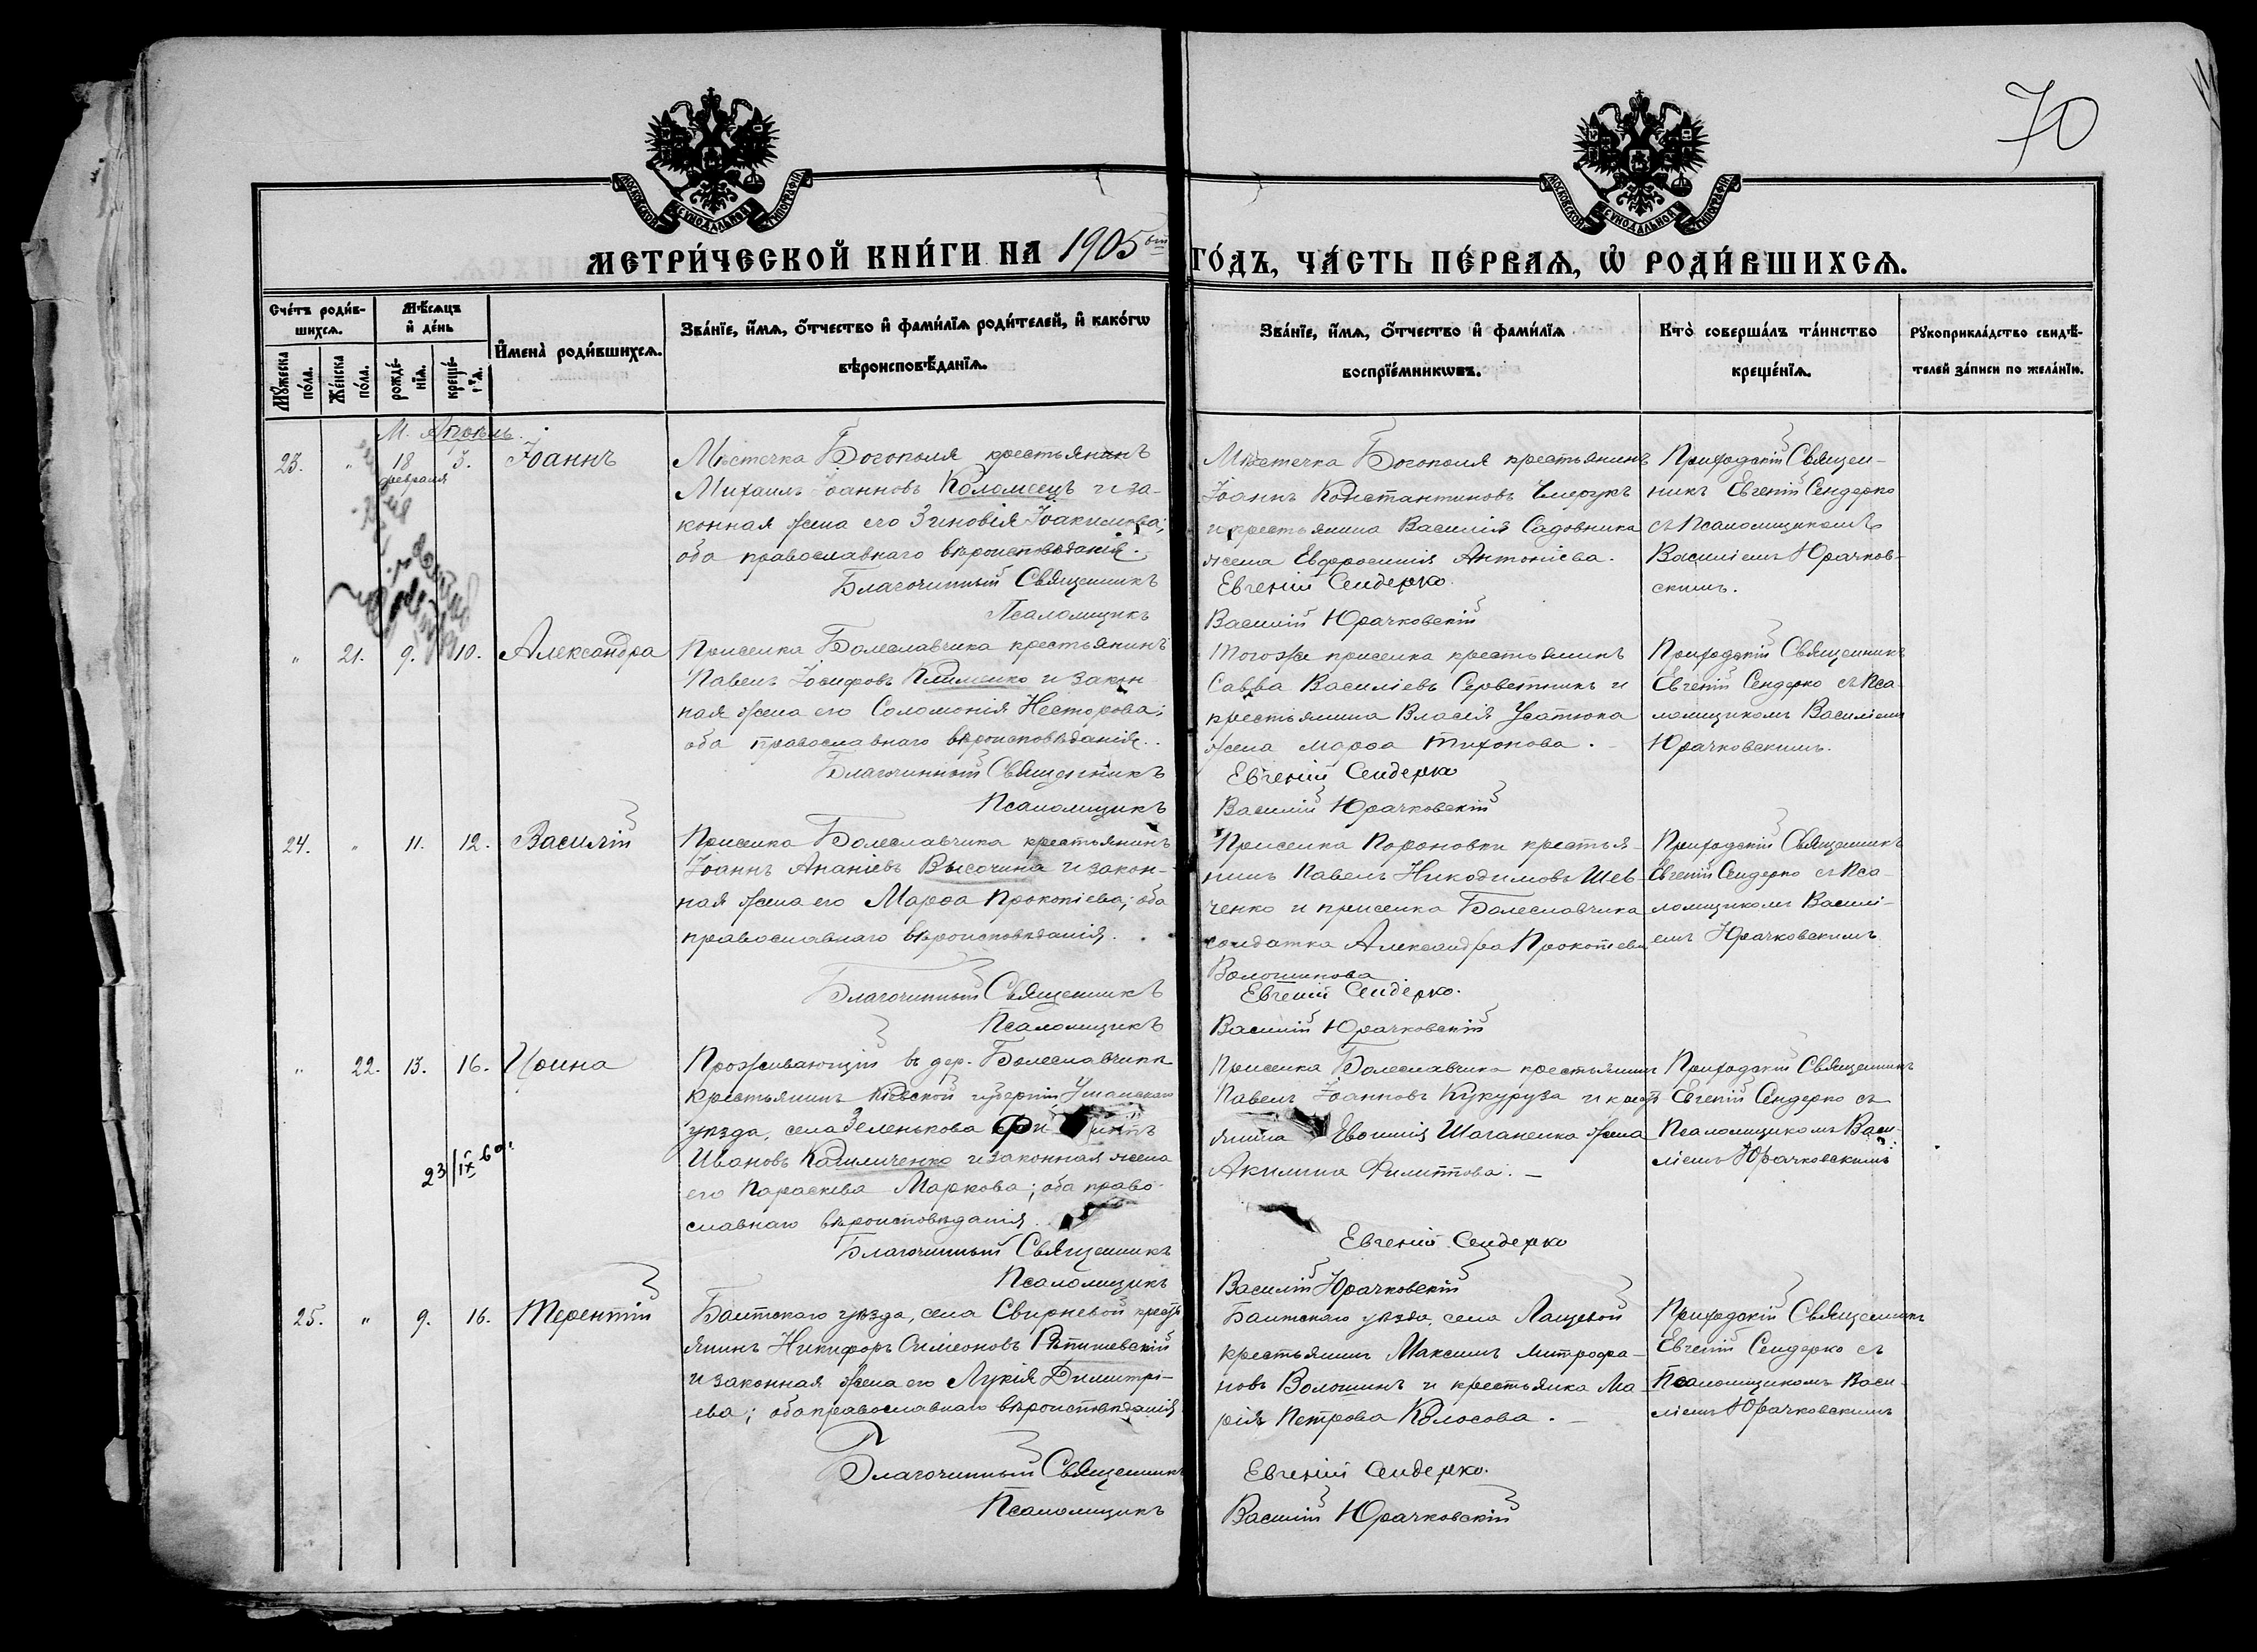 70
МОСКОВСКОЙ СѴНОДАЛЬНОЙ ТИПОГРАФІИ
МОСКОВСКОЙ СѴНОДАЛЬНОЙ ТИПОГРАФІИ
МЕТРИ́ЧЕСКОЙ КНИ́ГИ НА 1905 ГО́ДЪ, ЧА́СТЬ ПЕ́РВАѦ, Ѡ РОДИ́ВШИХСѦ.
Сче́тъ роди́в-
шихсѧ.
Мꙋ́жеска
по́ла.
Же́нска
по́ла.
Мѣ́сѧцъ
и҆ де́нь
рожде́-
нїѧ.
креще́-
Имена̀ роди́вшихсѧ.
Зва́нїе, и҆́мѧ, о҆́тчество и҆ фами́лїѧ роди́телей, и҆ како́гѡ
вѣроисповѣ́данїѧ.
Зва́нїе, и҆́мѧ, о҆́тчество и҆ фами́лїѧ
воспрїе́мникѡвъ.
Кто̀ соверша́лъ та́инство
креще́нїѧ.
Рꙋкоприкла́дство свидѣ́-
телей за́писи по жела́нїю.
М. Апрѣль.
23. " 18 февраля 3. Іоаннъ
Мѣстечка Богополя крестьянинъ
Михаилъ Іоанновъ Коломеецъ и за-
конная жена его Зиновія Іоакимова;
оба православнаго вѣроисповѣданія.
Благочинный Священникъ
Псаломщикъ
Мѣстечка Богополя крестьянинъ
Іоаннъ Константиновъ Чмерукъ
и крестьянина Василія Садовника
жена Евфросинія Антоніева.
Евгеній Сендерко.
Василій Юрачковскій
Приходскій Священ-
никъ Евгеній Сендерко
съ Псаломщикомъ
Василіемъ Юрачков-
скимъ.
" 21. 9. 10. Александра
Приселка Болеславчика крестьянинъ
Павелъ Іосифовъ Клименко и закон-
ная жена его Соломонія Несторова;
оба православнаго вѣроисповѣданія.
Благочинный Священникъ
Псаломщикъ
Того же приселка крестьянинъ
Савва Василіевъ Серветникъ и
крестьянина Власія Усатюка
жена Марѳа Тихонова.
Евгеній Сендерко
Василій Юрачковскій
Приходскій Священникъ
Евгеній Сендерко съ Пса-
ломщикомъ Василіемъ
Юрачковскимъ.
24. " 11. 12. Василій
Приселка Болеславчика крестьянинъ
Іоаннъ Ананіевъ Высочина и закон-
ная жена его Марѳа Прокопіева; оба
православнаго вѣроисповѣданія.
Благочинный Священникъ
Псаломщикъ
Приселка Пороновки крестья-
нинъ Павелъ Никодимовъ Шев-
ченко и приселка Болеславчика
солдатка Александра Прокопіева
Волошинова
Евгеній Сендерко.
Василій Юрачковскій
Приходскій Священникъ
Евгеній Сендерко съ Пса-
ломщикомъ Василі-
емъ Юрачковскимъ
" 22. 13. 16. Ирина
23/IX 60г.
Проживающій въ дер. Болеславчикѣ
крестьянинъ Кіевской губерніи Уманскаго
уѣзда, села Зеленькова
Ивановъ Кадиличенко и законная жена
его Параскева Маркова; оба право-
славнаго вѣроисповѣданія.
Благочинный Священникъ
Псаломщикъ
Приселка Болеславчика крестьянинъ
Павелъ Іоанновъ Кукуруза и крест
янина Евѳимія Шаганенка жена
Акилина Филиппова. —
Евгеній Сендерко
Василій Юрачковскій
Приходскій Священникъ
Евгеній Сендерко съ
Псаломщикомъ Васи-
ліемъ Юрачковскимъ
25. " 9. 16. Терентій
Балтскаго уѣзда, села Свирневой крест
янинъ Никифоръ Симеоновъ Рѣпишевскій
и законная жена его Лукія Димитрі-
ева; оба православнаго вѣроисповѣданія
Благочинный Священникъ
Псаломщикъ
Балтскаго уѣзда, села Лащевой
крестьянинъ Максимъ Митрофа-
новъ Волошинъ и крестьянка Ма-
рія Петрова Колосова. —
Евгеній Сендерко.
Василій Юрачковскій
Приходскій Священникъ
Евгеній Сендерко съ
Псаломщикомъ Васи-
ліемъ Юрачковскимъ